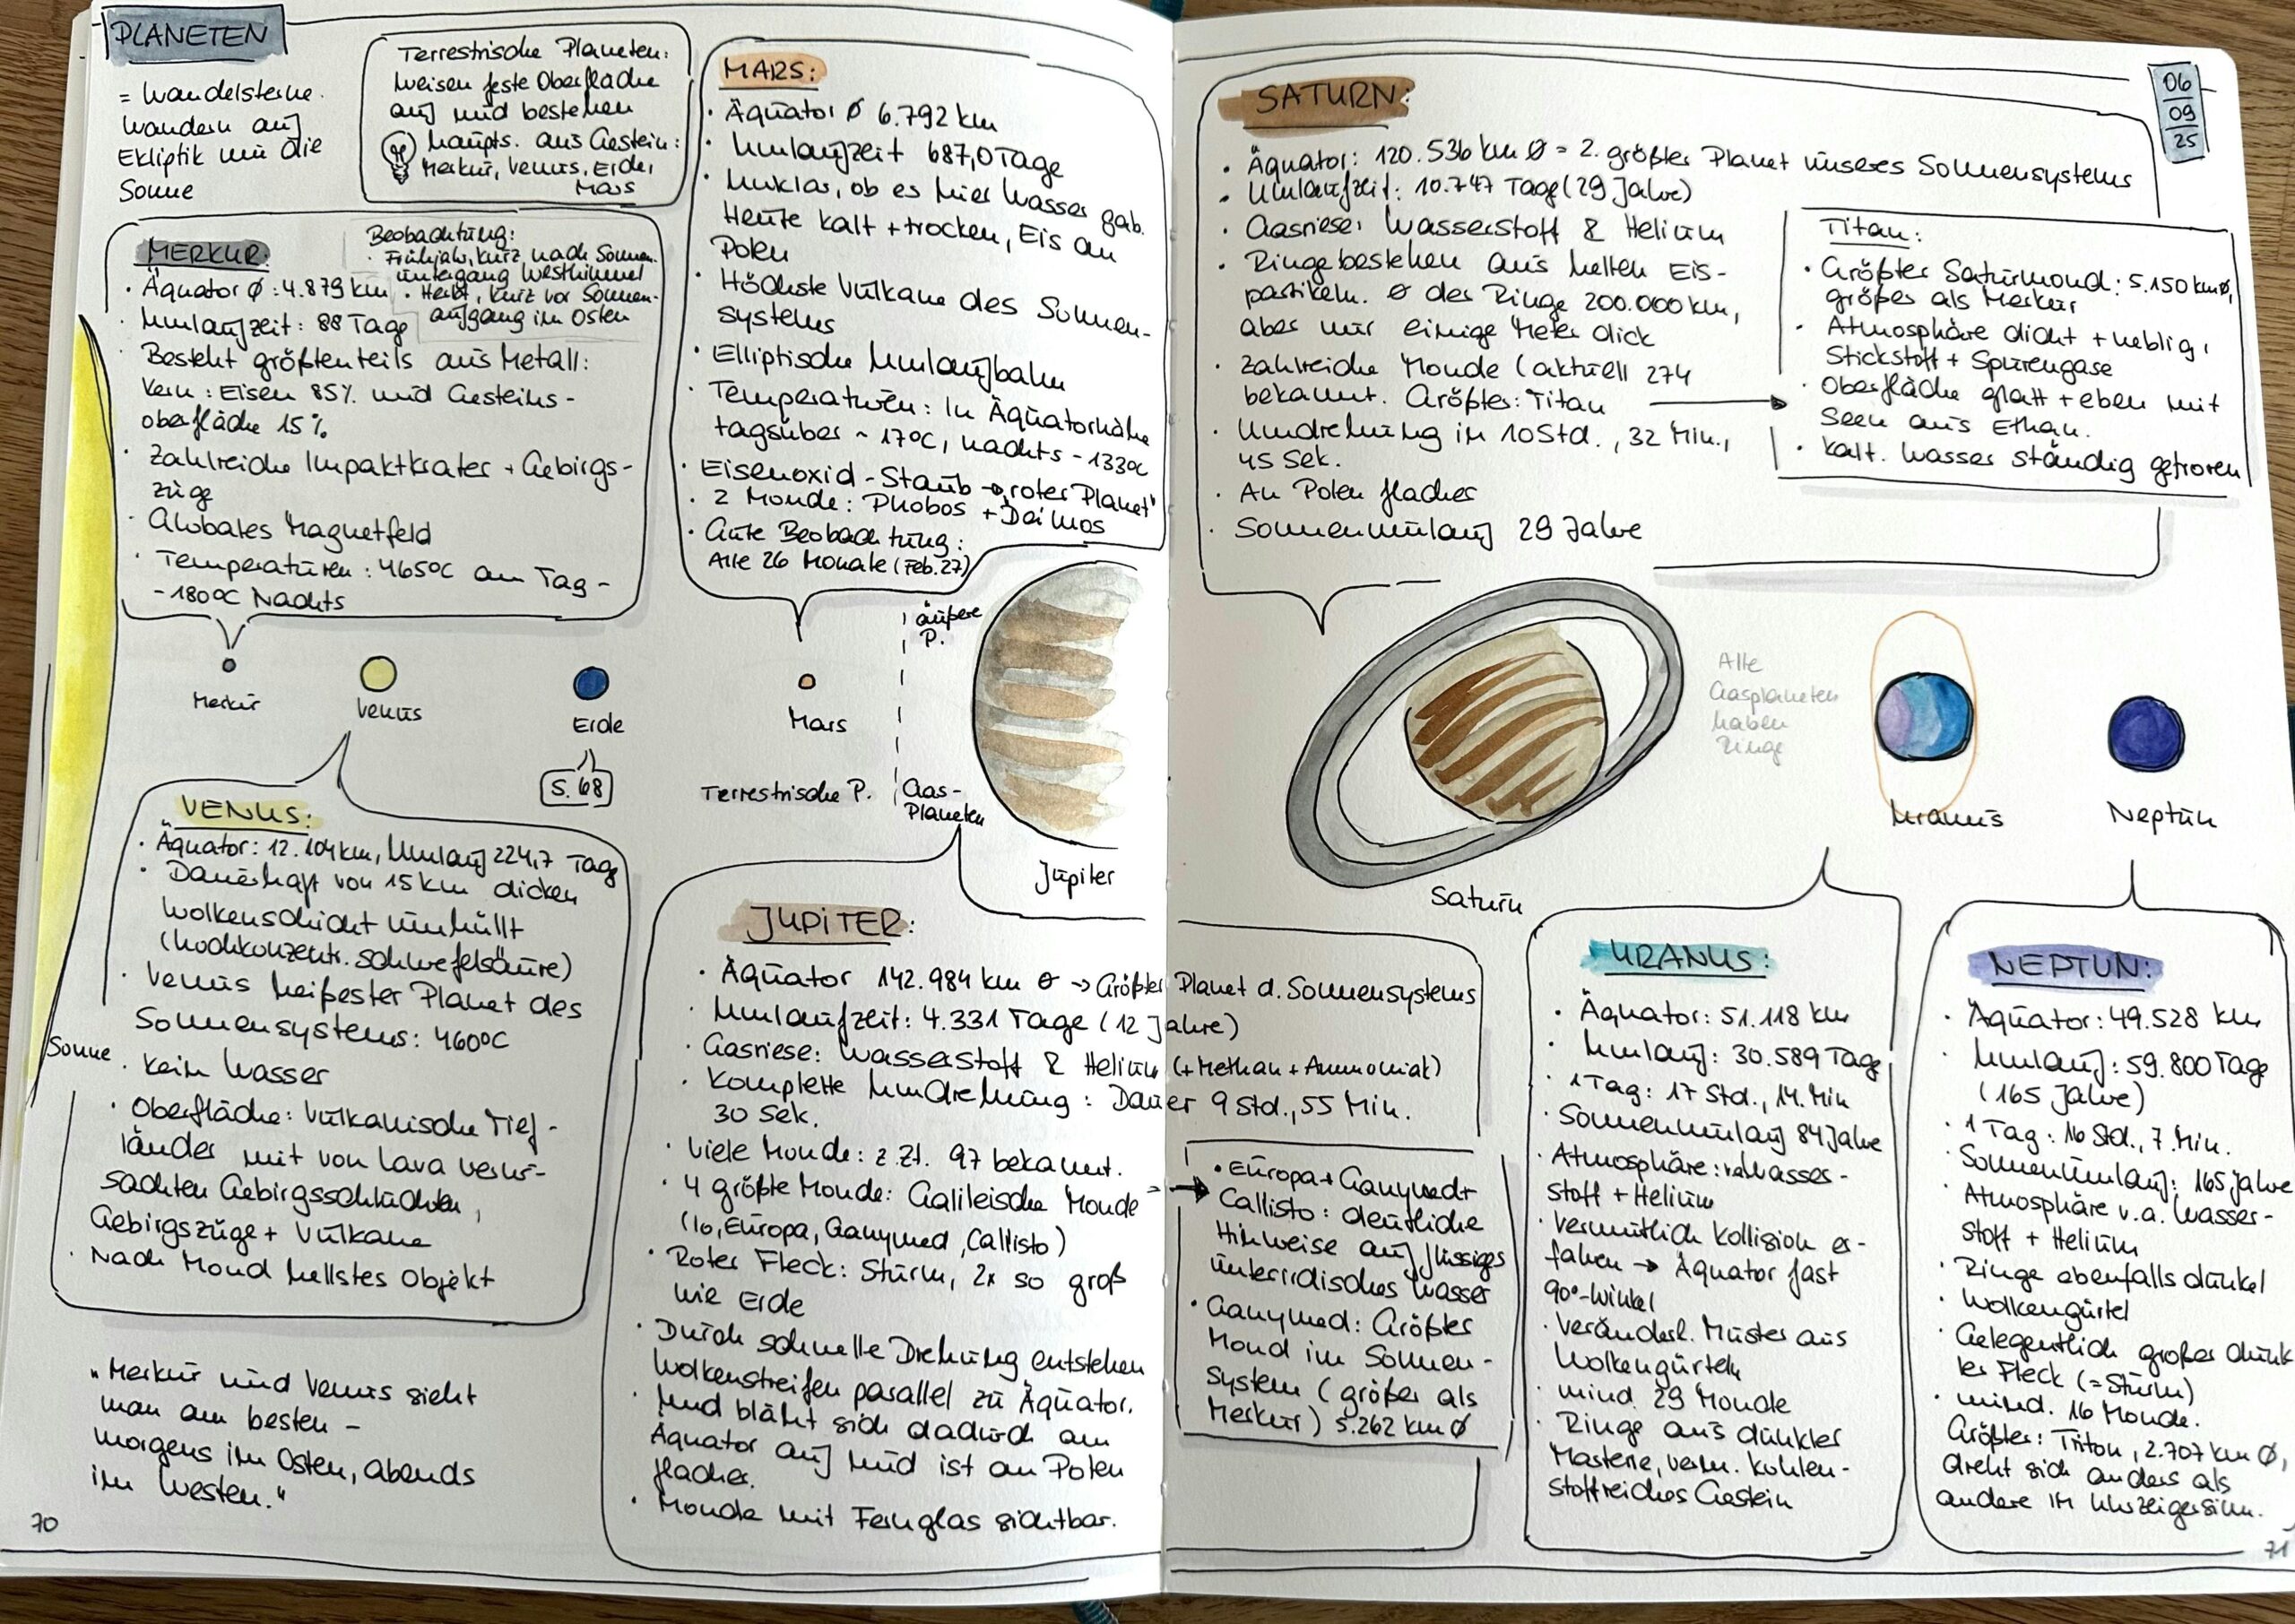 PLANETEN
= Wandelsterne.
Wandern auf
Ekliptik um die
Sonne
Terrestrische Planeten:
Weisen feste Oberfläche
auf und bestehen
haupts. aus Gestein:
Merkur, Venus, Erde,
Mars
MERKUR:
Beobachtung:
· Frühjahr, kurz nach Sonnen-
untergang Westhimmel
· Herbst, kurz vor Sonnen-
aufgang im Osten
· Äquator Ø: 4.879 km
· Umlaufzeit: 88 Tage
· Besteht größtenteils aus Metall:
Kern: Eisen 85% und Gesteins-
oberfläche 15%
· Zahlreiche Impaktkrater + Gebirgs-
züge
· Globales Magnetfeld
· Temperaturen: 465°C am Tag -
-180°C Nachts
MARS:
· Äquator Ø 6.792 km
· Umlaufzeit 687,0 Tage
· Unklar, ob es hier Wasser gab.
Heute kalt + trocken, Eis an
Polen
· Höchste Vulkane des Sonnen-
systems
· Elliptische Umlaufbahn
· Temperaturen: In Äquatornähe
tagsüber ~ 17°C, nachts -133°C
· Eisenoxid-Staub → "roter Planet"
· 2 Monde: Phobos + Deimos
· Gute Beobachtung:
Alle 26 Monate (Feb. 27)
Merkur
Venus
Erde
S. 68
Mars
Terrestrische P.
äußere
P.
Gas-
Planeten
Jupiter
Sonne
VENUS:
· Äquator: 12.104 km, Umlauf 224,7 Tage
· Dauerhaft von 15 km dicken
Wolkenschicht umhüllt
(hochkonzentr. Schwefelsäure)
· Venus heißester Planet des
Sonnensystems: 460°C
· Kein Wasser
· Oberfläche: Vulkanische Tief-
länder mit von Lava verur-
sachten Gebirgsschluchten,
Gebirgszüge + Vulkane
· Nach Mond hellstes Objekt
"Merkur und Venus sieht
man am besten -
morgens im Osten, abends
im Westen."
70
JUPITER:
· Äquator 142.984 km Ø → Größter Planet d. Sonnensystems
· Umlaufzeit: 4.331 Tage (12 Jahre)
· Gasriese: Wasserstoff & Helium (+ Methan + Ammoniak)
· Komplette Umdrehung: Dauer 9 Std., 55 Min.
30 Sek.
· Viele Monde: z. Zt. 97 bekannt.
· 4 größte Monde: Galileische Monde
(Io, Europa, Ganymed, Callisto)
· Roter Fleck: Sturm, 2x so groß
wie Erde
· Durch schnelle Drehung entstehen
Wolkenstreifen parallel zu Äquator.
· Und bläht sich dadurch am
Äquator auf und ist an Polen
flacher.
· Monde mit Fernglas sichtbar.
· Europa + Ganymed +
Callisto: deutliche
Hinweise auf flüssiges
unterirdisches Wasser
· Ganymed: Größter
Mond im Sonnen-
system (größer als
Merkur) 5.262 km Ø
06
09
25
SATURN:
· Äquator: 120.536 km Ø = 2. größter Planet unseres Sonnensystems
· Umlaufzeit: 10.747 Tage (29 Jahre)
· Gasriese: Wasserstoff & Helium
· Ringe bestehen aus hellen Eis-
partikeln. Ø der Ringe 200.000 km,
aber nur einige Meter dick
· Zahlreiche Monde (aktuell 274
bekannt. Größter: Titan
· Umdrehung in 10 Std., 32 Min.,
45 Sek.
· An Polen flacher
· Sonnenumlauf 29 Jahre
Titan:
· Größter Saturmond: 5.150 km Ø,
größer als Merkur
· Atmosphäre dicht + neblig,
Stickstoff + Spurengase
· Oberfläche glatt + eben mit
Seen aus Ethan.
· Kalt. Wasser ständig gefroren
Saturn
Alle
Gasplaneten
haben
Ringe
Uranus
Neptun
URANUS:
· Äquator: 51.118 km
· Umlauf: 30.589 Tage
· 1 Tag: 17 Std., 14. Min
· Sonnenumlauf 84 Jahre
· Atmosphäre: Wasser-
stoff + Helium
· Vermutlich Kollision er-
fahren → Äquator fast
90°-Winkel
· Veränderl. Muster aus
Wolkengürteln
· mind. 29 Monde
· Ringe aus dunkler
Materie, verm. kohlen-
stoffreiches Gestein
NEPTUN:
· Äquator: 49.528 km
· Umlauf: 59.800 Tage
(165 Jahre)
· 1 Tag: 16 Std., 7 Min.
· Sonnenumlauf: 165 Jahre
· Atmosphäre v.a. Wasser-
stoff + Helium
· Ringe ebenfalls dunkel
· Wolkengürtel
· Gelegentlich großer dunk-
ler Fleck (= Sturm)
· mind. 16 Monde.
Größter: Triton, 2.707 km Ø,
dreht sich anders als
andere im Uhrzeigersinn.
71